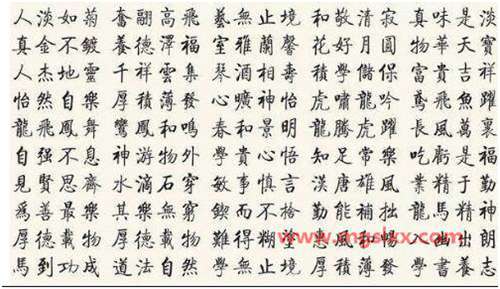 人淡如菊 奮翮高飛 藝無止境 和敬清寂 真味是淡
真金不鍍 養德澤福 室雅蘭馨 花好月圓 物華天寶
人杰地靈 千祥雲集 琴酒相壽 學儲保 富貴吉祥
怡然自樂 厚積薄發 心曠神怡 虎嘯龍吟 鳶飛魚躍
龍飛鳳舞 鸞鳳和鳴 春和景明 龍騰虎躍 長風萬裏
自强不息 神游物外 學貴心悟 知足常樂 吃虧是福
見賢思齊 水滴石穿 敏事慎言 漢唐雄風 業精于勤
爲善最樂 其樂無窮 鍥而不捨 勤能補拙 龍馬精神
厚德載物 厚德載物 難得糊 風暢 幽出朗
馬到功成 道法自然 學無止境 厚積薄發 學書養志